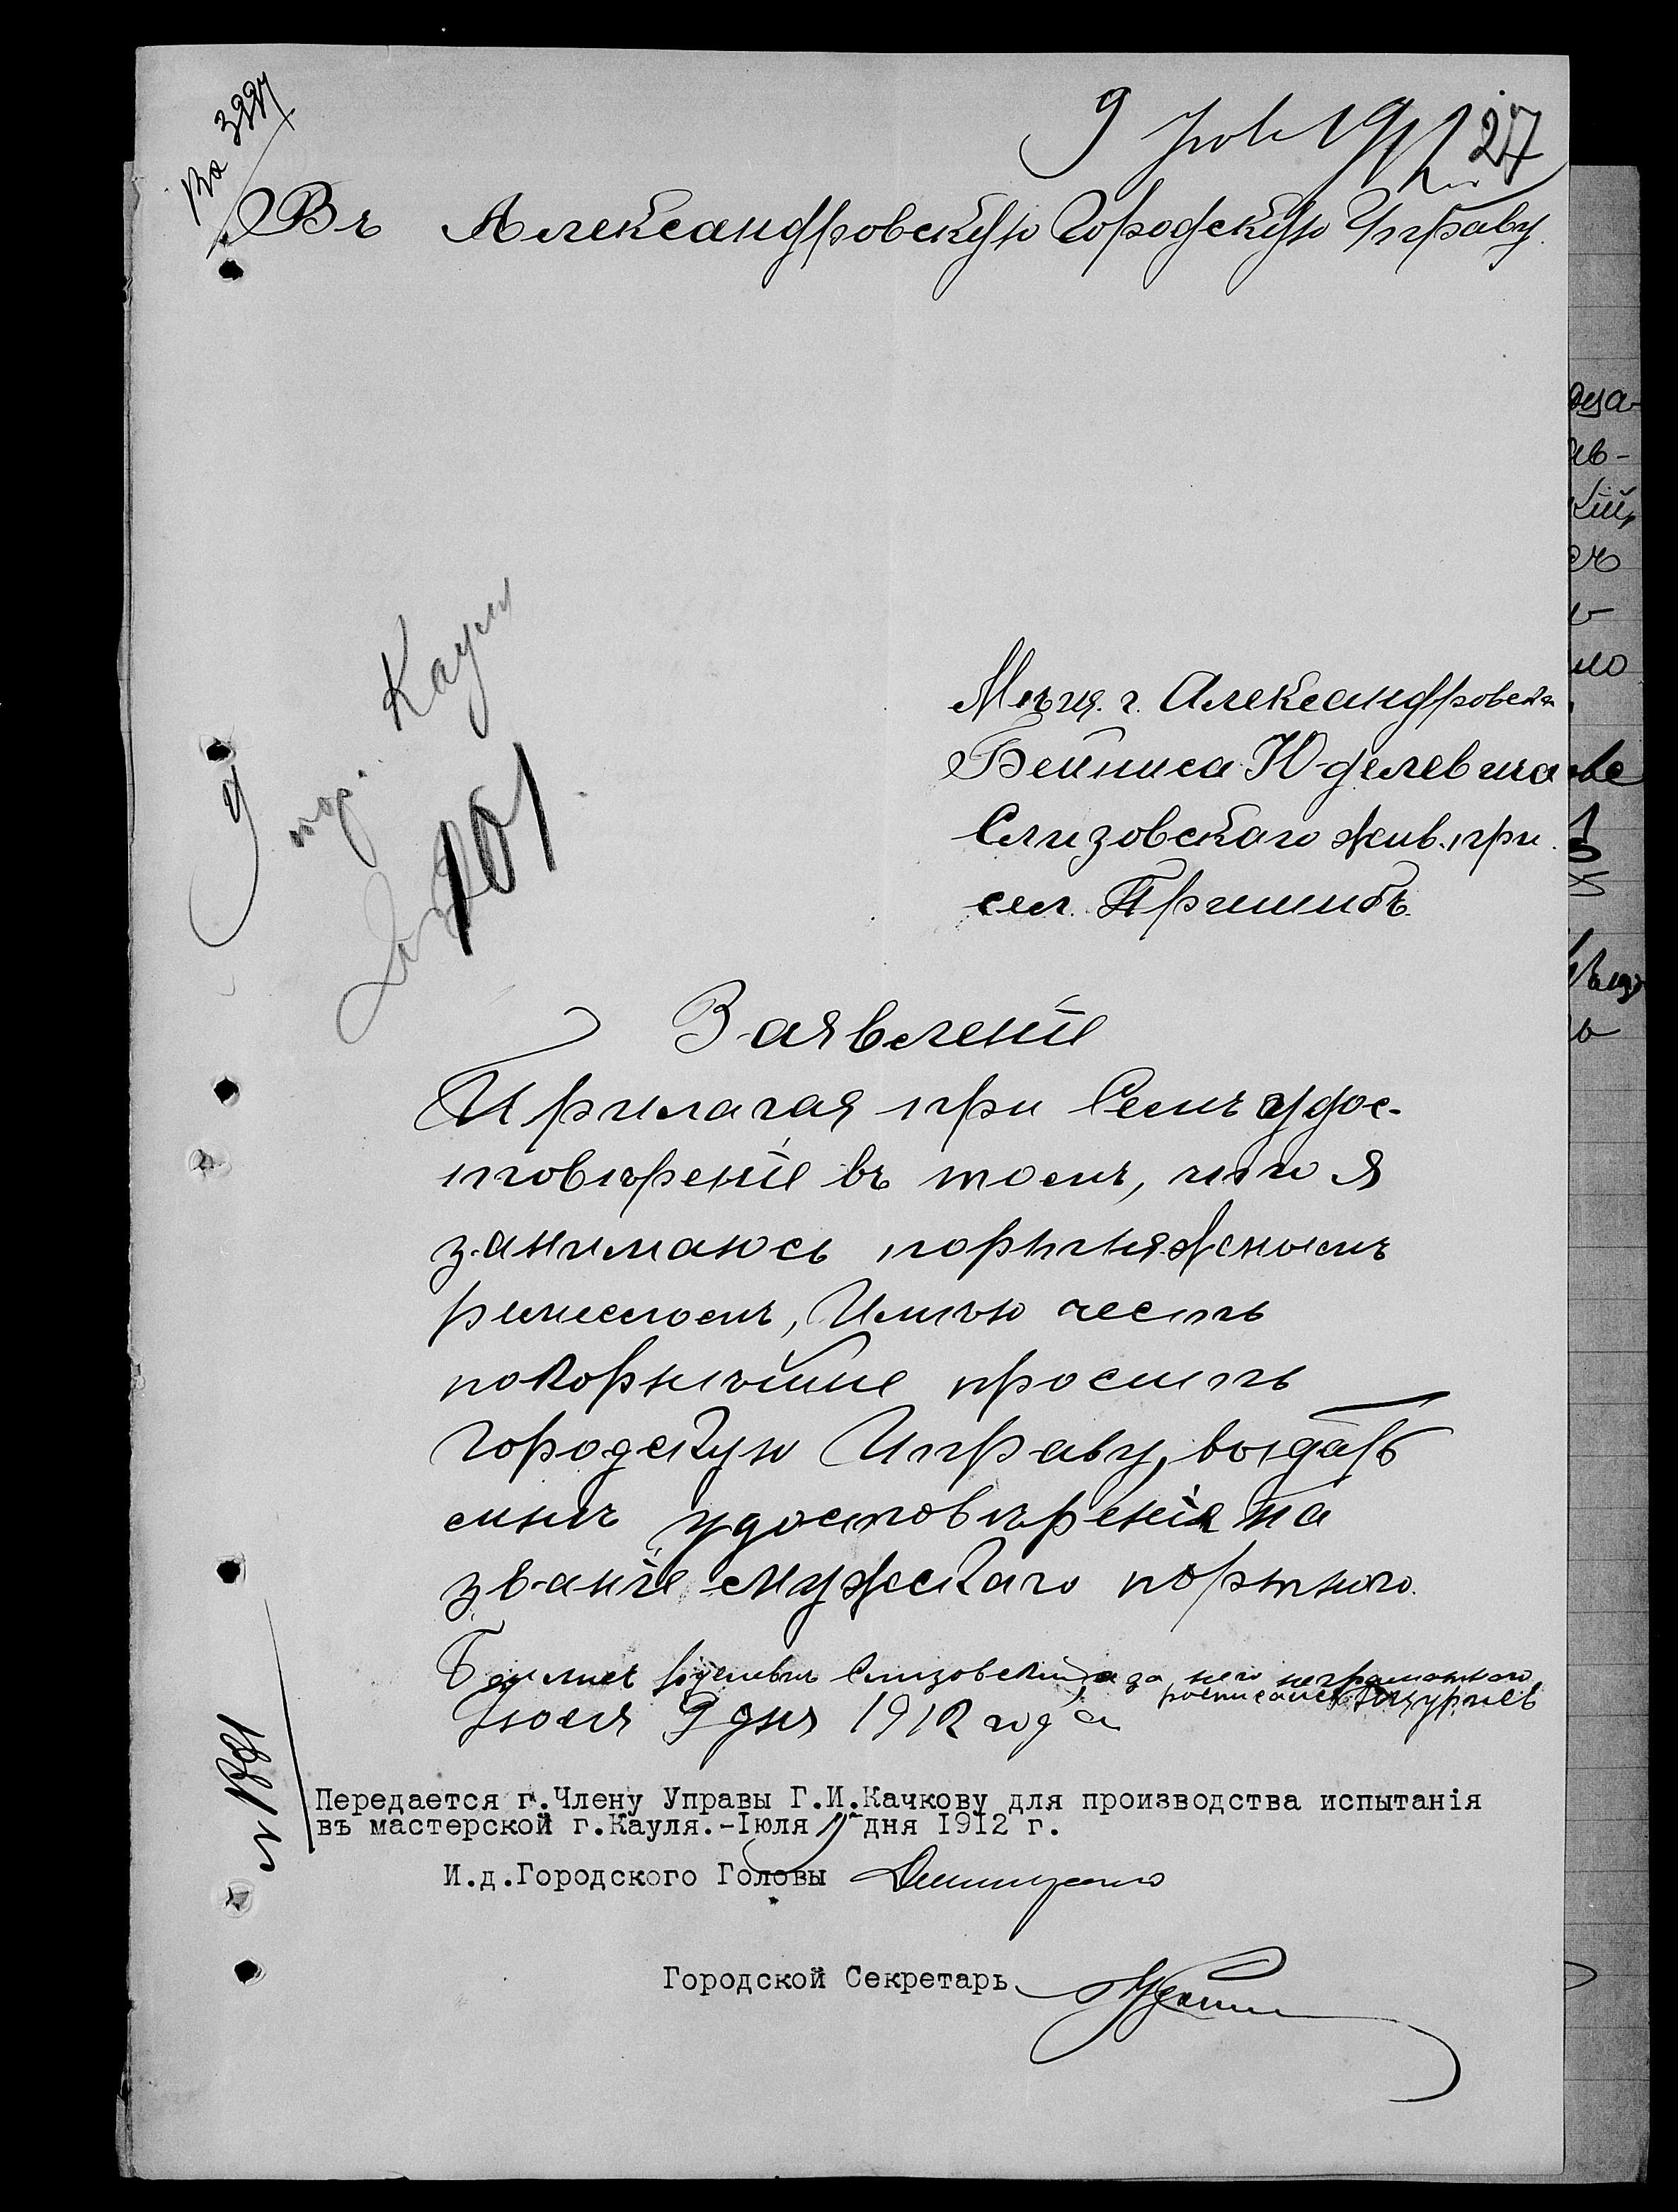 Вх 3997
9 Іюля 1912
27
Въ Александровскую Городскую Управу.
Кауля
101
Мѣщ. г. Александровска
Бейниса Юделевича
Слизовскаго жив. при
сел. Пришибъ.
Заявленіе
Прилагая при семъ удос-
товѣреніе въ томъ, что я
занимаюсь портняжнымъ
ремесломъ, Имѣю честь
покорнѣйше просить
Городскую Управу, выдать
мнѣ удостовѣренія на
званіе мужскаго портного.
Бейнисъ Юделевичъ Слизовскій, а за него неграмотного
росписался
Іюля 9 дня 1912 года
№ 1381
Передается г.Члену Управы Г.И.Качкову для производства испытанія
въ мастерской г.Кауля.-Іюля дня 1912 г.
И.д.Городского Головы
Городской Секретарь